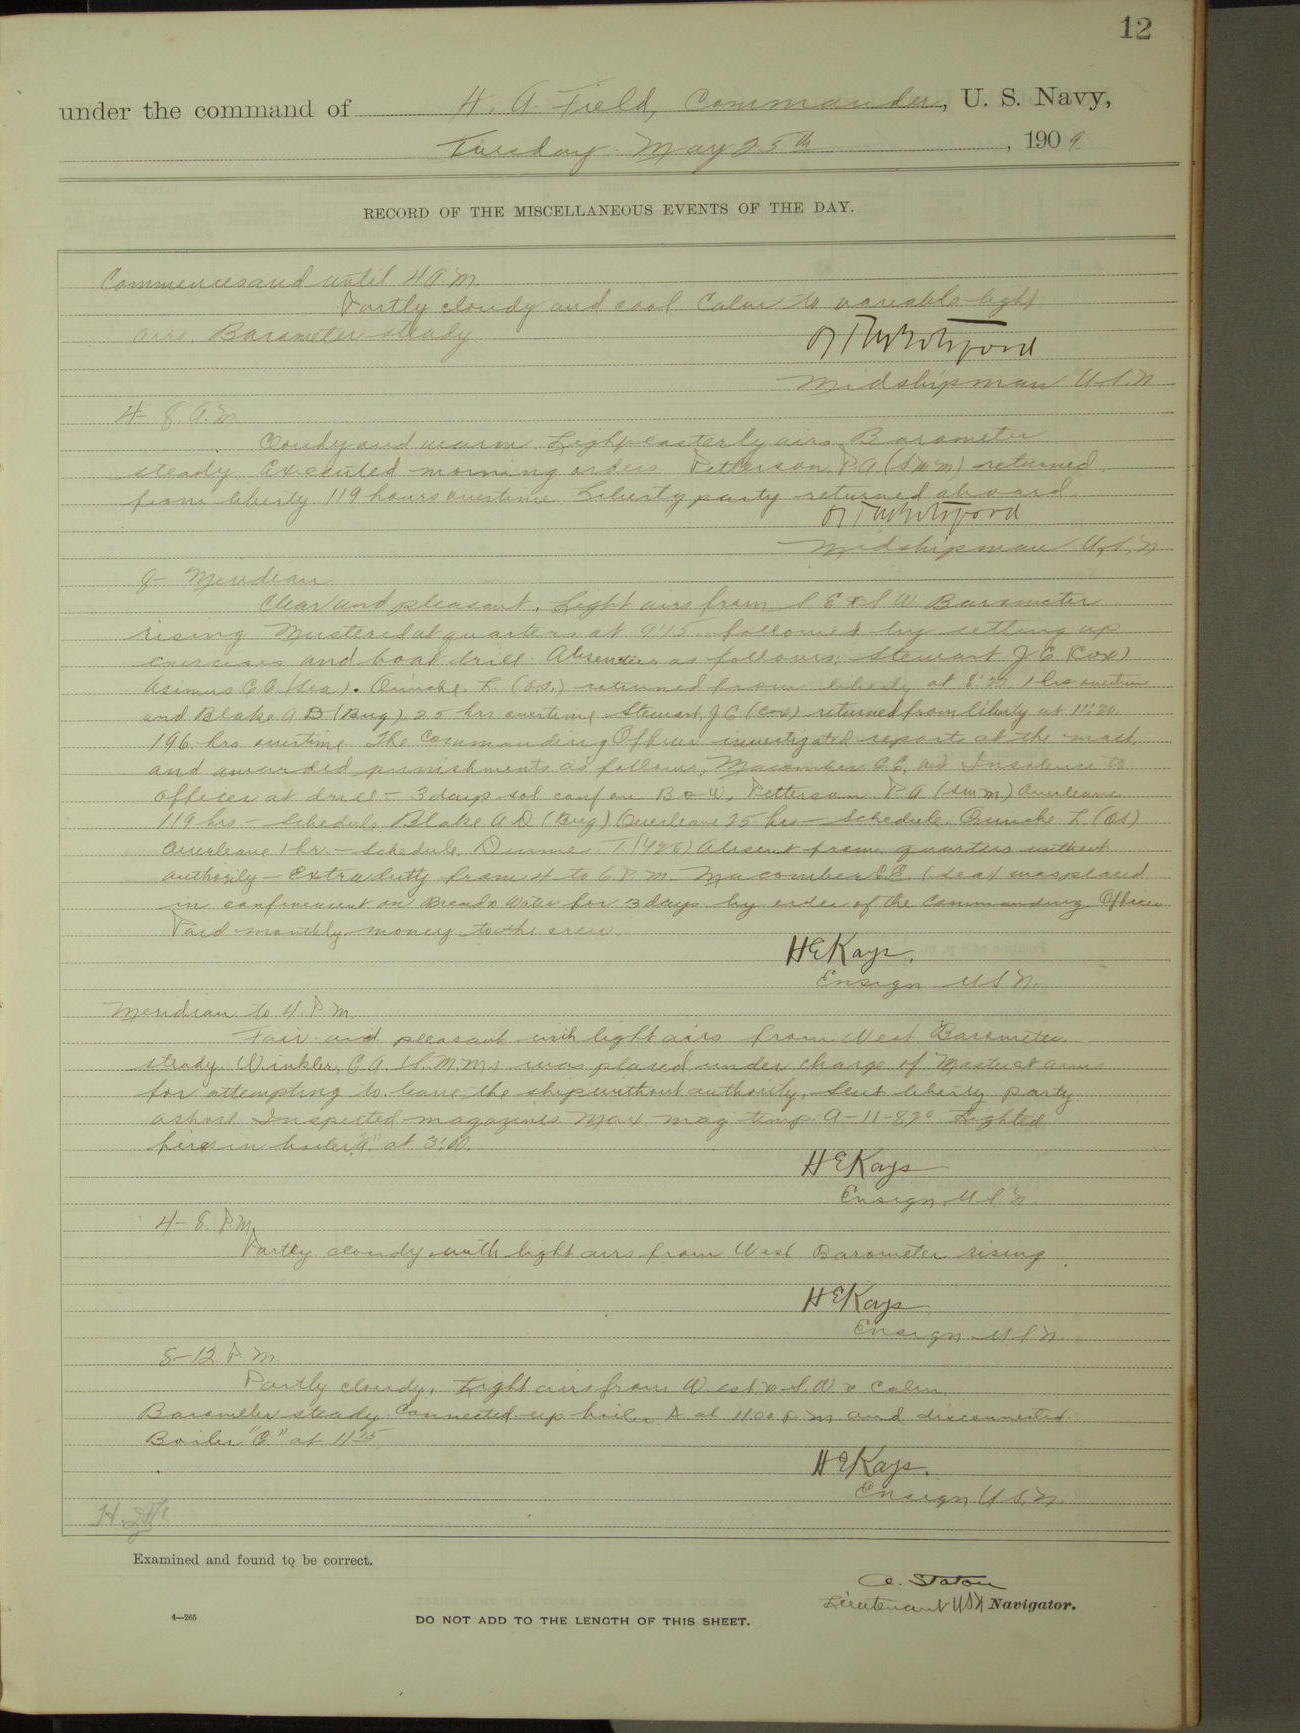 12
under the command of H. A. Field, Commander, U. S. Navy,
Tuesday May 25th, 1909
RECORD OF THE MISCELLANEOUS EVENTS OF THE DAY.
Commences and until 4 A.M.
Partly cloudy and cool Calm to variable light
airs Barometer steady
Midshipman U.S.N
4- 8. A.M
Cloudy and warm Light easterly airs Barometer
steady Executed morning orders Petterson P.A (SMM) returned
from liberty 119 hours overtime Liberty party returned aboard.
Midshipman U.S.N
8- Meridian
Clear and pleasant. Light airs from S E & S W Barometer
rising Mustered at quarters at 9:15 followed by setting up
exercises and boat drill. Absentees as follows: Stewart J C (Cox)
(Sea). L. (O.S.) returned from liberty at 1 hrs overtime
and Blake A D (Bug) 25 hrs overtime Stewart J C (Cox) returned from liberty at 11:20
196 hrs overtime The Commanding Officer investigated reports at the mast
and awarded punishments as follows; Macomber C.E. Insolence to
officer at drill - 3 days sol conf on B & W, Petterson P A (SMM) Overleave
119 hrs - Schedule Blake A D (Bug) Overleave 25 hrs - Schedule. L (OS)
Overleave 1 hr. - Schedule T. Absent from quarters without
authority - Extra duty from 4 to 6 P.M. Macomber C.E. (Sea) was placed
in confinement on Bread & Water for 3 days by order of the Commanding Officer
Paid monthly money to the crew.
H E Kays.
Ensign U S N.
Meridian to 4. P.M.
Fair and pleasant with light airs from West Barometer
steady. Winkler, C A. was placed under charge of Master at arms
for attempting to leave the ship without authority. Sent liberty party
ashore Inspected magazines Max mag temp. A-11-82° Lighted
fires in boiler "A" at 3:00.
H E Kays
Ensign U.S.N.
4- 8. P.M.
Partly cloudy with light airs from West Barometer rising
H E Kays
Ensign U S N.
8-12 P.M.
Partly cloudy. Light airs from West & S.W & Calm.
Barometer steady Connected up boiler A at 11:00 P M and disconnected
Boiler "C" at 11 25
H E Kays.
Ensign U.S.N.
Examined and found to be correct.
A. Staton
Lieutenant USN Navigator.
4—265
DO NOT ADD TO THE LENGTH OF THIS SHEET.